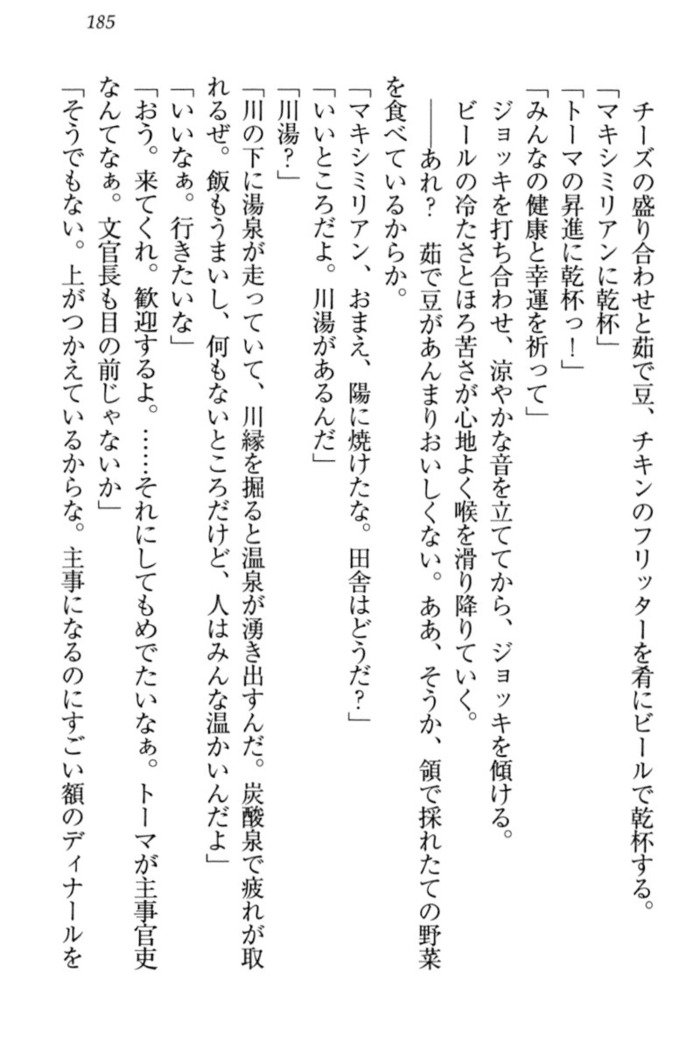 185
チーズの盛り合わせと茹で豆、チキンのフリッターを肴にビールで乾杯する。
「マキシミリアンに乾杯」
「トーマの昇進に乾杯っ！」
「みんなの健康と幸運を祈って」
ジョッキを打ち合わせ、涼やかな音を立ててから、ジョッキを傾ける。
ビールの冷たさとほろ苦さが心地よく喉を滑り降りていく。
――あれ？　茹で豆があんまりおいしくない。ああ、そうか、領で採れたての野菜
を食べているからか。
「マキシミリアン、おまえ、陽に焼けたな。田舎はどうだ？」
「いいところだよ。川湯があるんだ」
「川湯？」
「川の下に湯泉が走っていて、川縁を掘ると温泉が湧き出すんだ。炭酸泉で疲れが取
れるぜ。飯もうまいし、何もないところだけど、人はみんな温かいんだよ」
「いいなぁ。行きたいな」
「おう。来てくれ。歓迎するよ。……それにしてもめでたいなぁ。トーマが主事官吏
なんてなぁ。文官長も目の前じゃないか」
「そうでもない。上がつかえているからな。主事になるのにすごい額のディナールを